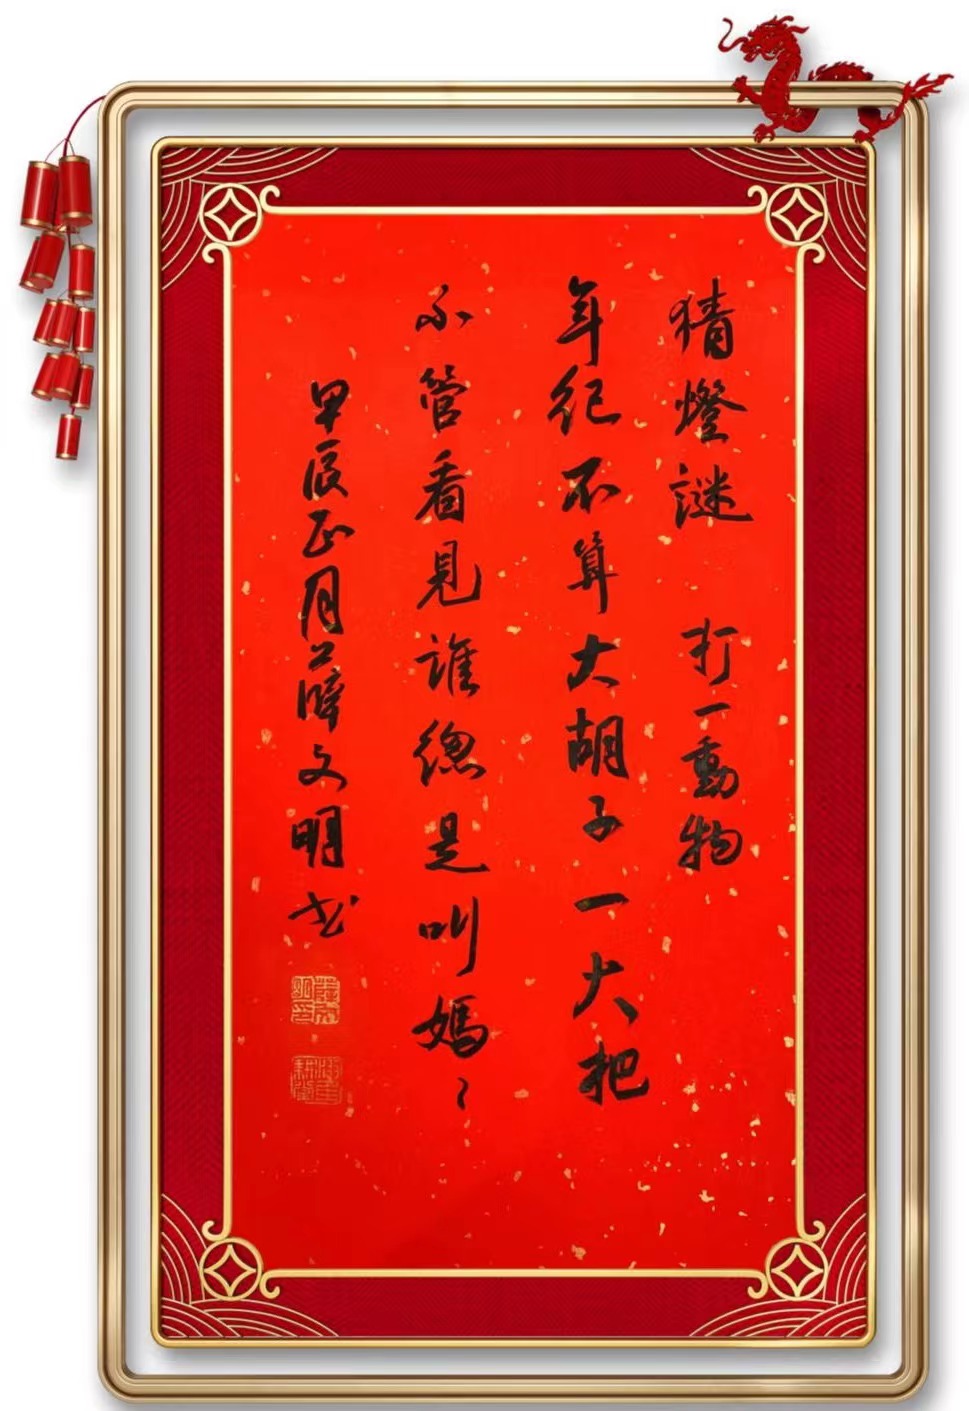 猜燈謎 打一動物
年纪不算大胡子一大把
不管看見誰總是叫媽〻
甲辰正月薛文明书